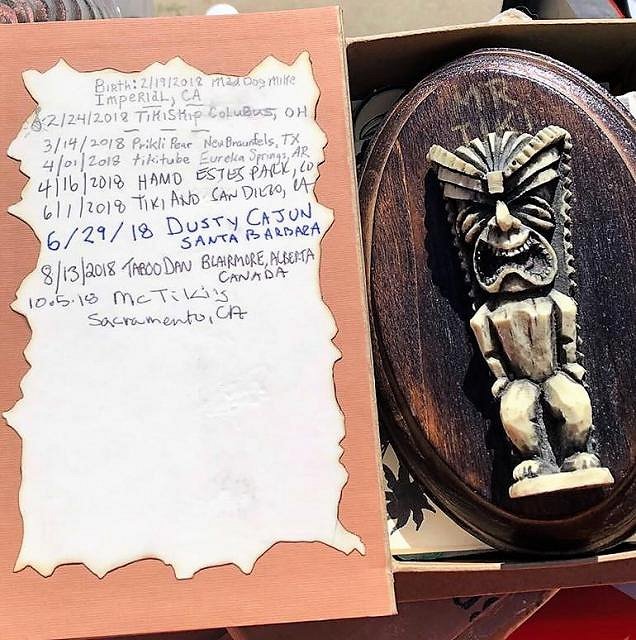 Birth: 2/19/2018 Mad Dog Mike
Imperial, CA
2/24/2018 TikiSkip Colubus, OH
3/14/2018 Prikli Pear New Braunfels, TX
4/01/2018 tikitube Eureka Springs, AR
4/16/2018 HAMO ESTES PARK, CO
6/1/2018 TIKI AND SAN DIEGO, CA
6/29/18 DUSTY CAJUN
SANTA BARBARA
8/13/2018 TABOO DAN BLAIRMORE, ALBERTA
CANADA
10.5.18 McTiki's
Sacramento, CA
MR